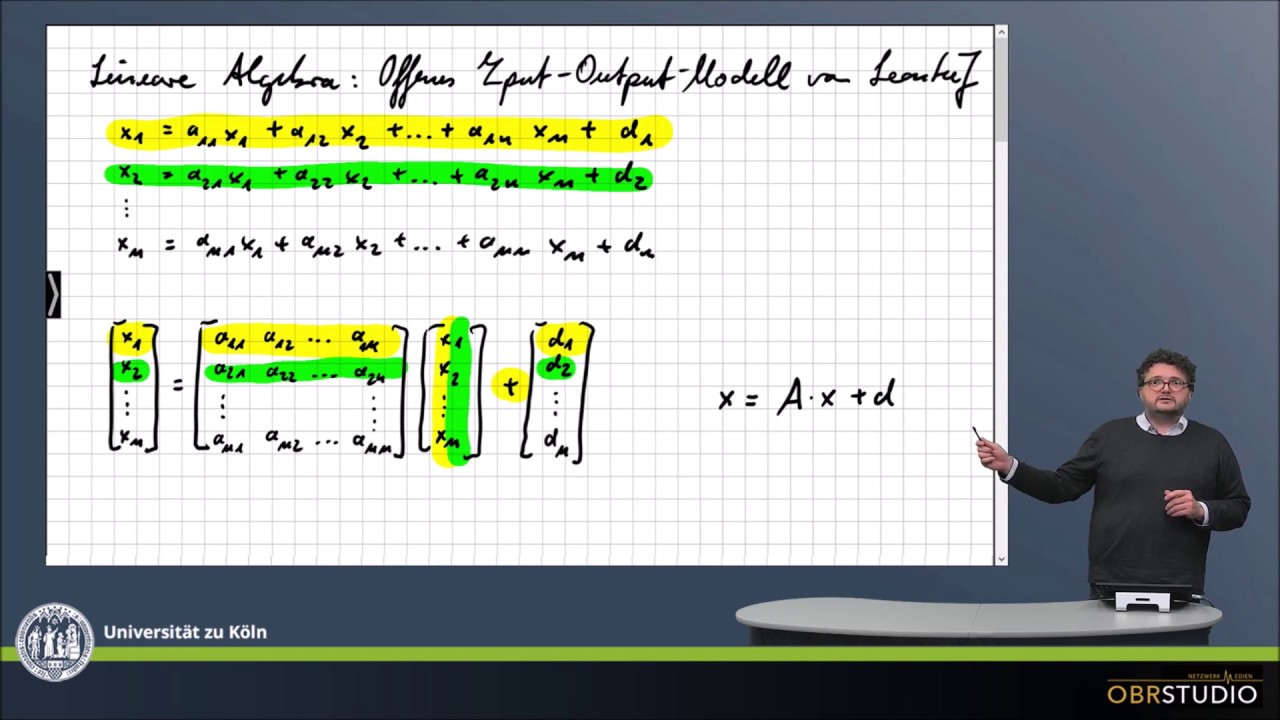 Lineare Algebra: Offenes Input-Output-Modell von Leontief
x₁ = a₁₁ x₁ + a₁₂ x₂ + ... + a₁ₙ xₙ + d₁
x₂ = a₂₁ x₁ + a₂₂ x₂ + ... + a₂ₙ xₙ + d₂
⋮
xₙ = aₙ₁ x₁ + aₙ₂ x₂ + ... + aₙₙ xₙ + dₙ
[x₁ x₂ ⋮ xₙ] = [a₁₁ a₁₂ ... a₁ₙ a₂₁ a₂₂ ... a₂ₙ ⋮ ⋮ aₙ₁ aₙ₂ ... aₙₙ] [x₁ x₂ ⋮ xₙ] + [d₁ d₂ ⋮ dₙ]
x = A · x + d
Universität zu Köln
NETZWERK MEDIEN
OBRSTUDIO